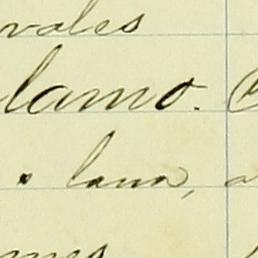 vales
lamo.
lana, a
mes